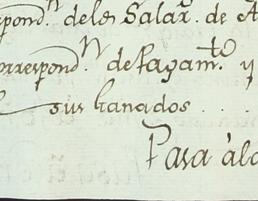 spond.ⁿ de los Salar.ˢ de A
orrespond.ⁿ de Pagam.ᵗᵒ y
sus Ganados . . .
Para